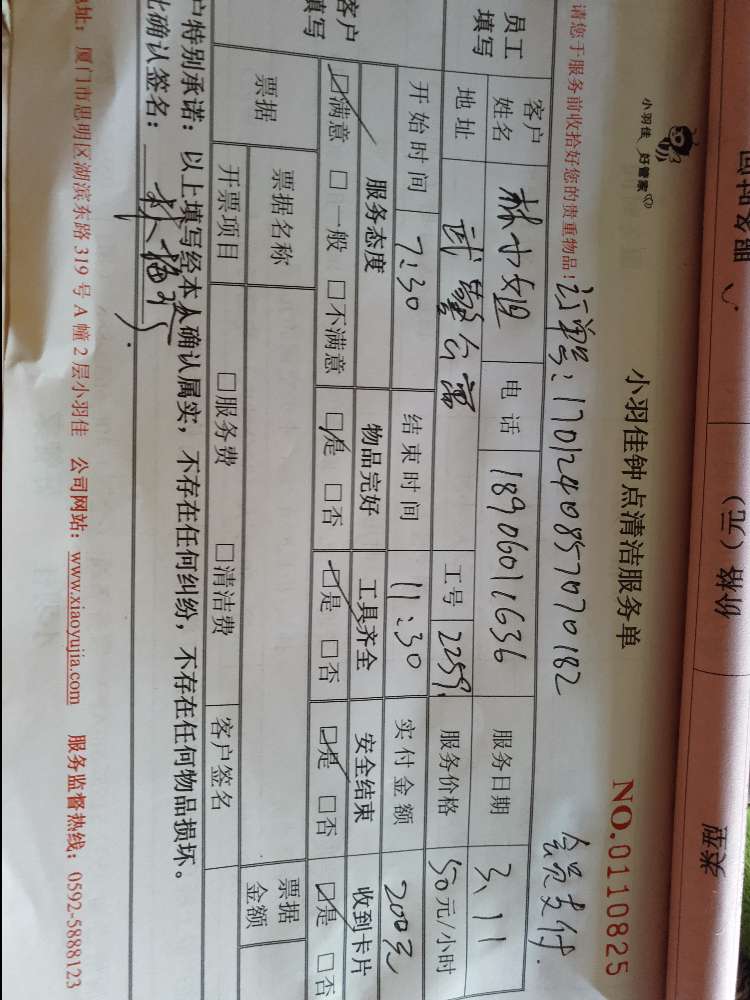 价格（元）
类型
小羽佳 好管家
小羽佳钟点清洁服务单
NO.0110825
请您于服务前收拾好您的贵重物品！
订单号：1701240857070182
会员支付.
员工填写
客户姓名 林小姐 电话 18906011636 服务日期 3.11
地址 武警公寓 工号 2259. 服务价格 50元/小时
开始时间 7:30 结束时间 11:30 实付金额 200元
客户填写
服务态度 物品完好 工具齐全 安全结束 收到卡片
☑满意 □一般 □不满意 ☑是 □否 ☑是 □否 ☑是 □否 ☑是 □否
票据 票据名称 票据金额
开票项目 □服务费 □清洁费 客户签名
户特别承诺：以上填写经本人确认属实，不存在任何纠纷，不存在任何物品损坏。
此确认签名：
地址：厦门市思明区湖滨东路319号A幢2层小羽佳 公司网站：www.xiaoyujia.com 服务监督热线：0592-5888123